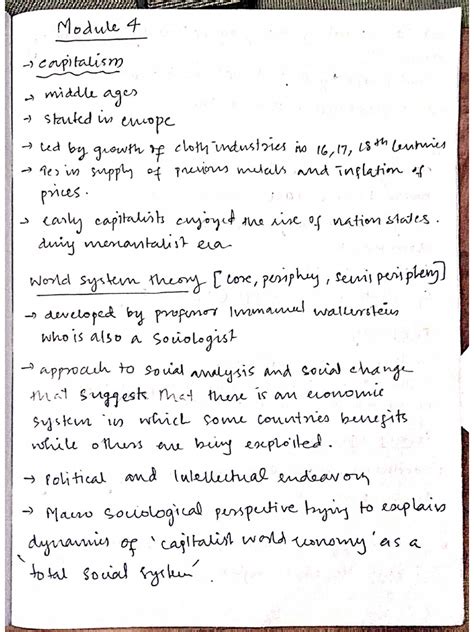 Module 4
→ capitalism
→ middle ages
→ started in europe
→ led by growth of cloth industries in 16, 17, 18th Centuries
→ in supply of precious metals and inflation of
prices.
→ early capitalists enjoyed the rise of nation states.
during mercantalist era
World system theory [core, periphey, semi periphery]
→ developed by professor Immanuel wallerstein
who is also a Sociologist
→ approach to social analysis and social change
that suggests that there is an economic
system in which some countries benefits
while others are being exploited.
→ Political and Intellectual endeavory
→ Macro Sociological perspective trying to explains
dynamics of 'capitalist world economy' as a
'total social system'.